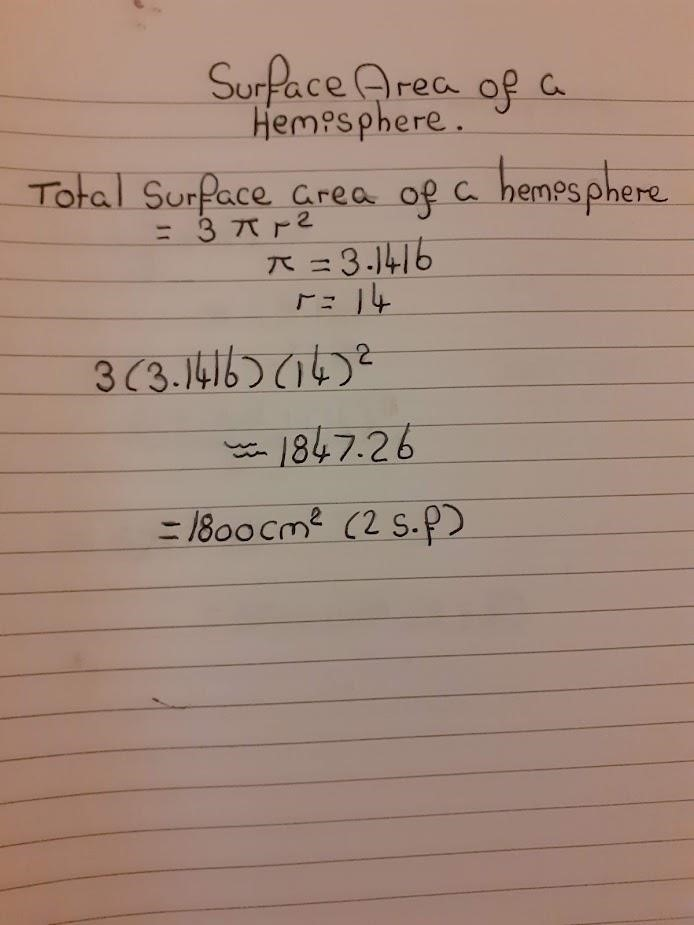 Surface Area of a
Hemisphere.
Total Surface area of a hemisphere
= 3 π r²
π = 3.1416
r = 14
3(3.1416)(14)²
≈ 1847.26
= 1800cm² (2 s.f)